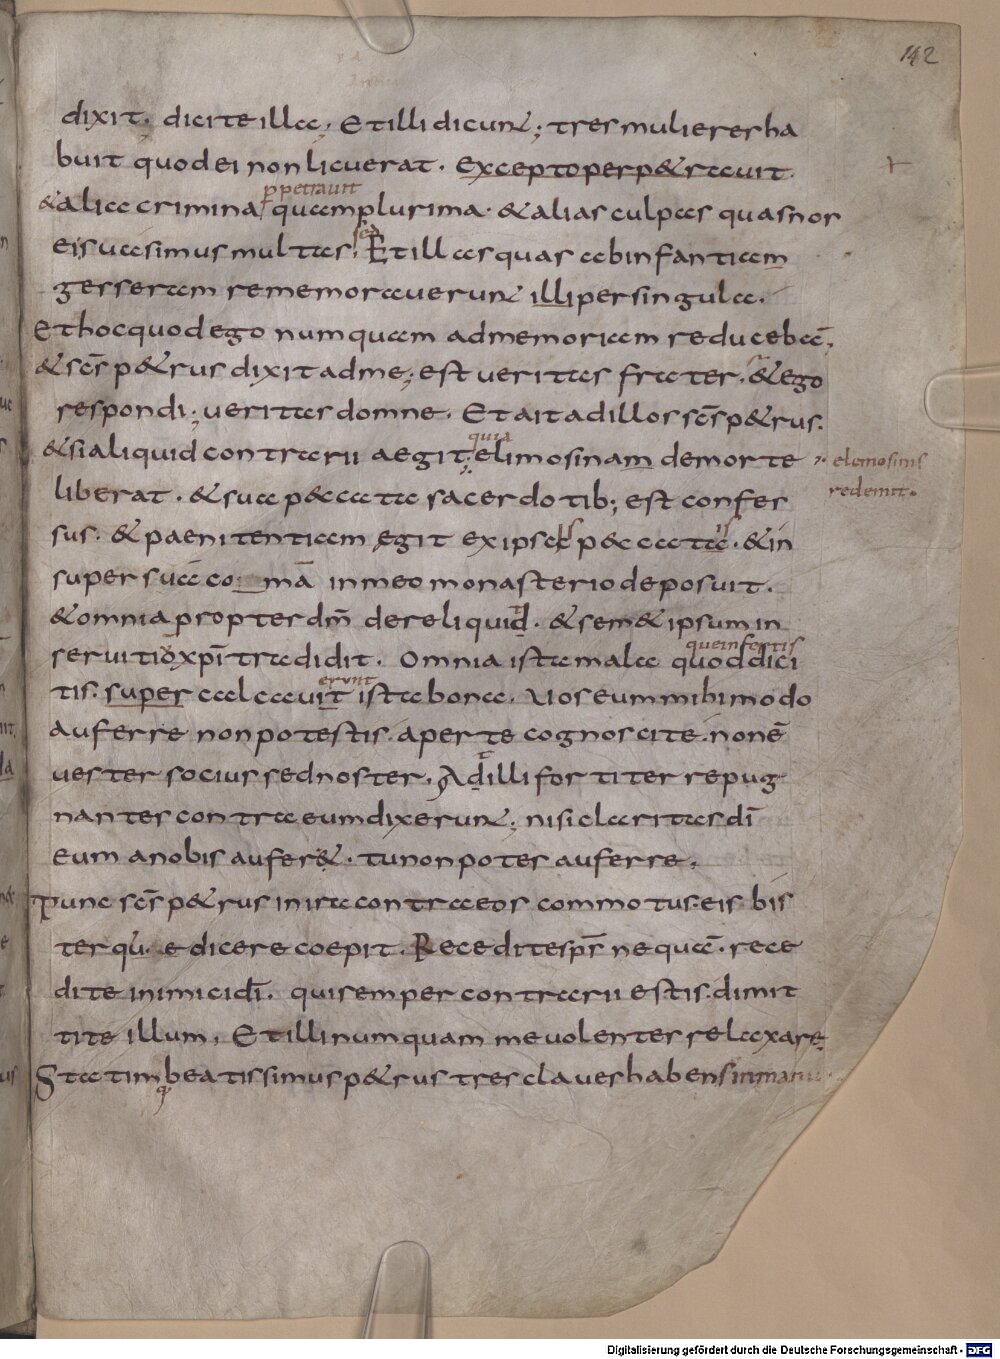 142
dixit. dicite illa; Et illi dicunt; tres mulieres ha
buit quod ei non licuerat. Excepto perp&rauit.
ppetrauit
& alia crimina quam plurima. & alias culpas quas nos
sea
ei suasimus multas. Et illas quas ab infantiam
gesseram rememorauerunt illi per singula.
Et hoc quod ego numquam ad memoriam reducebā,
& scs p&rus dixit ad me; est ueritas frater. & ego
respondi; ueritas domne. Et ait ad illos scs p&rus.
quia
& si aliquid contrarii aegit; elimosinam de morte
elemosinis
liberat. & sua p&cata sacerdotib; est confes
redemit.
sus. & paenitentiam egit ex ipsa p&cata. & in
super suā co mā in meo monasterio deposuit.
& omnia propter dm̄ dereliquid. & sem& ipsum in
seruitio xpī tradidit. Omnia ista mala quod dici
que infertis
erunt
tis. super ualauit ista bona. Uos eum mihi modo
auferre non potestis. aperte cognoscite. non ē
uester socius sed noster. Ad illi fortiter repug
nantes contra eum dixerunt; nisi claritas dī
eum a nobis aufer&. tu non potes auferre.
Tunc scs p&rus in ira contra eos commotus. eis. bis
terqu. e dicere coepit. Recedite sps nequā. rece
dite inimici dī. qui semper contrarii estis. dimit
tite illum, Et illi numquam me uolentes relaxare
Statim beatissimus p&rus tres claues habens in manu
q